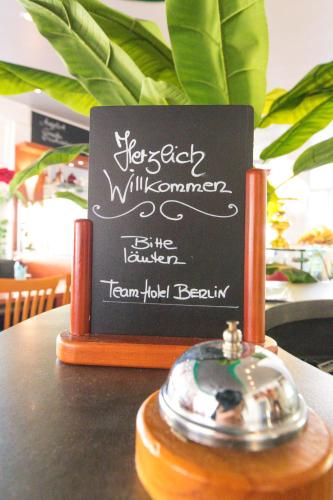 Herzlich
Willkommen
Bitte
läuten
Team Hotel BERLIN